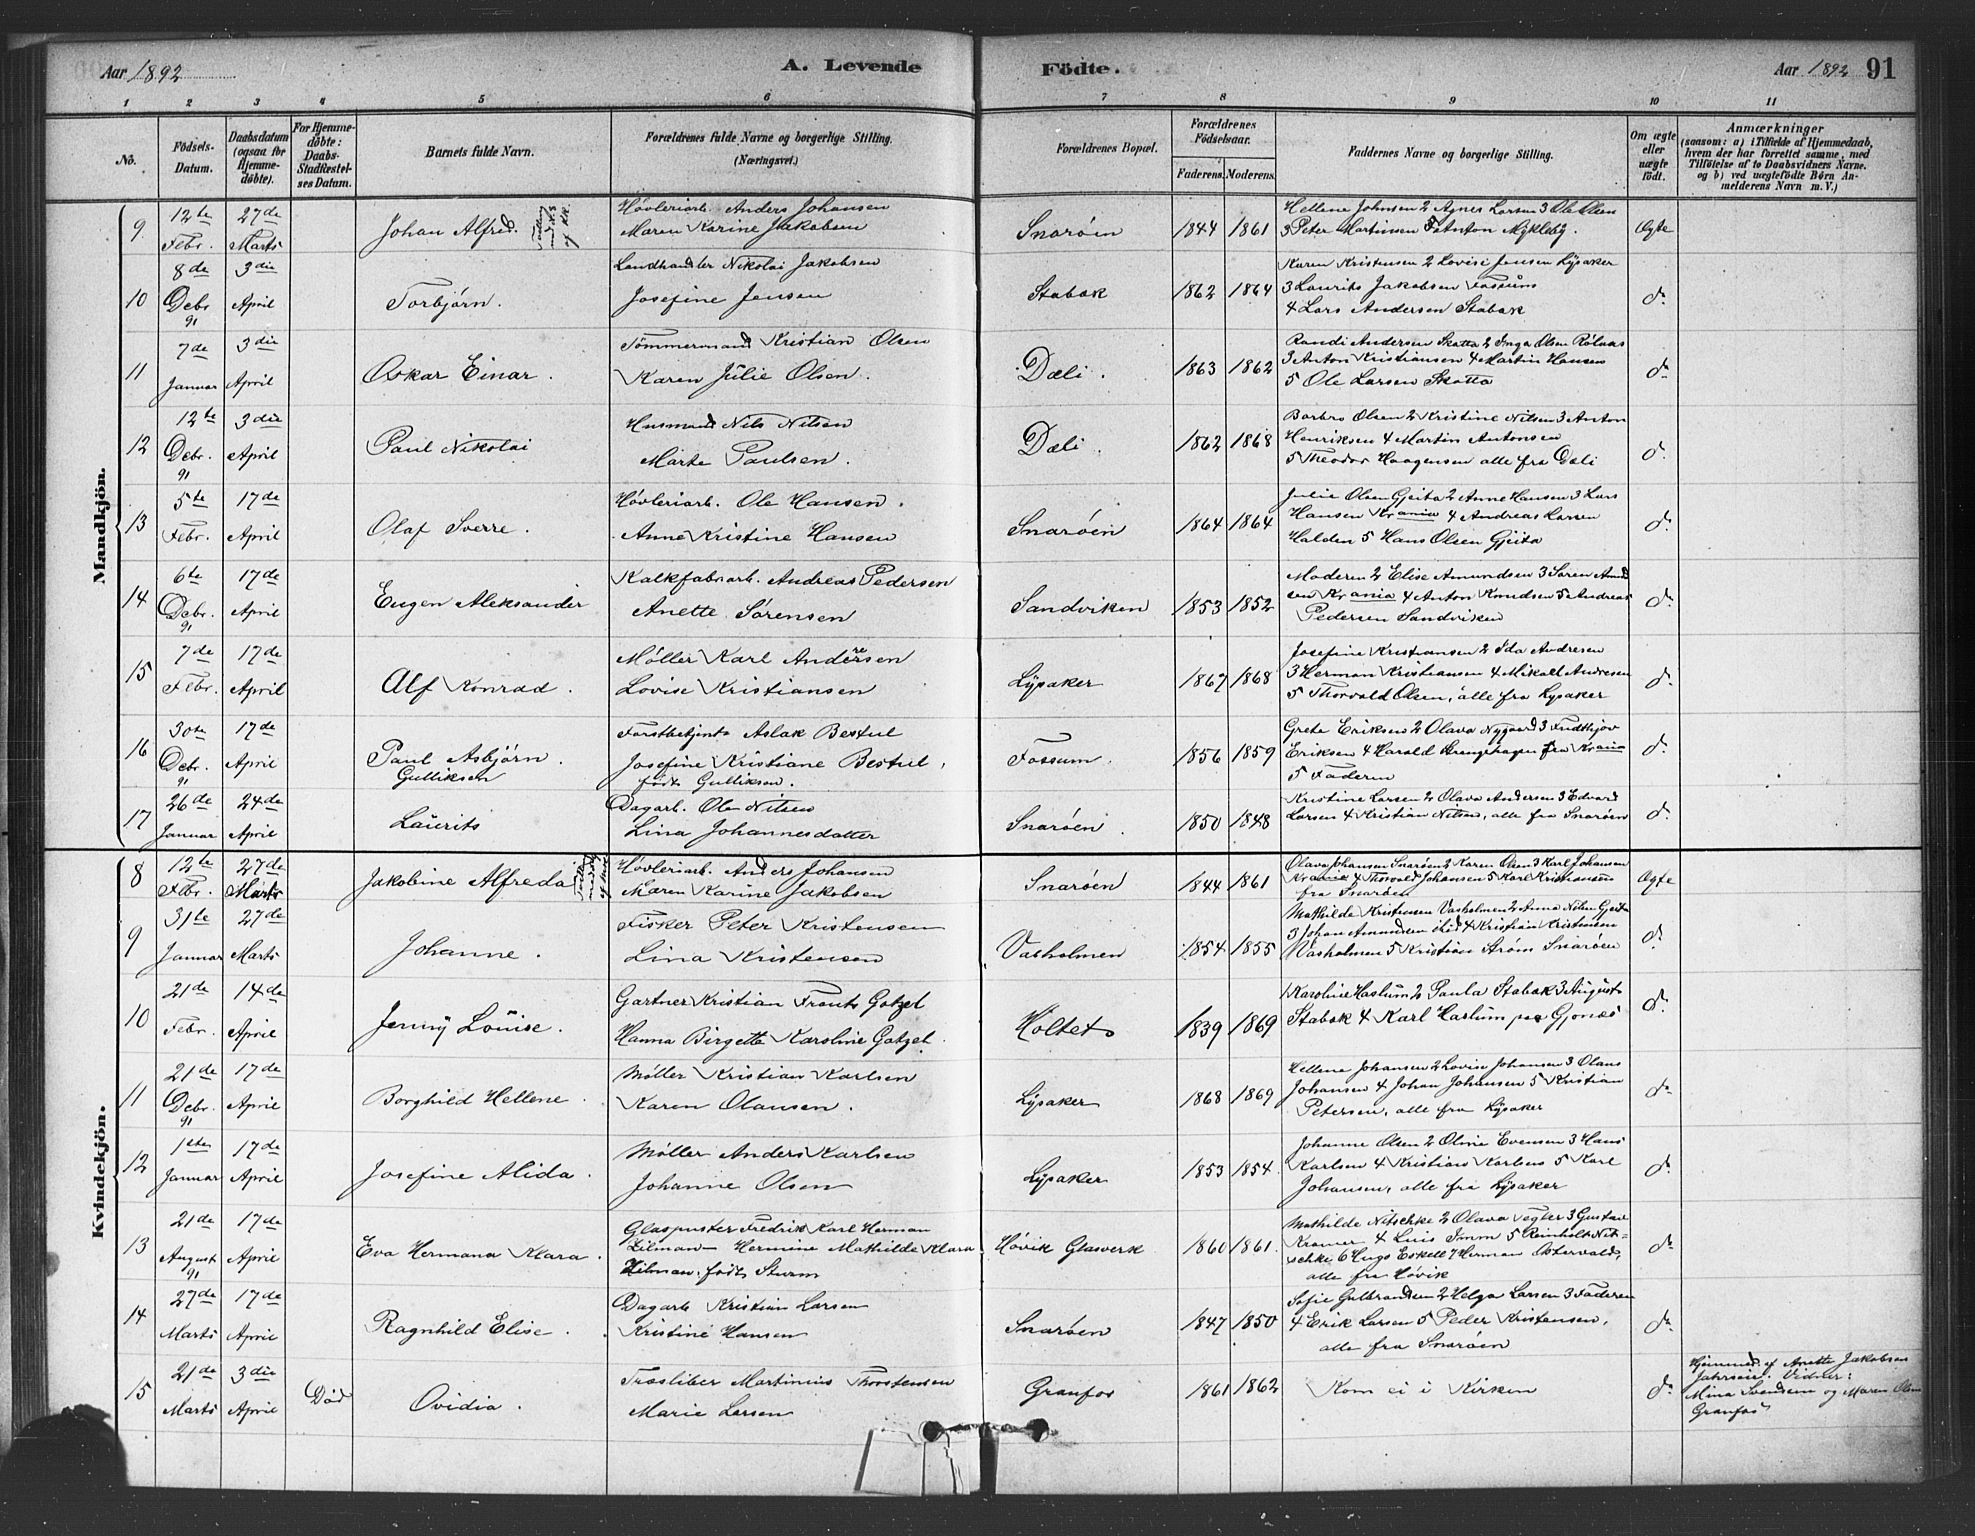 Aar 1892
A. Levende
Födte.
Aar 1892 91
1 2 3 4 5 6 7 8 9 10 11
No.
Födsels-Datum.
Daabsdatum (ogsaa for Hjemme-döbte).
For Hjemme-döbte: Daabs-Stadfæstelses Datum.
Barnets fulde Navn.
Forældrenes fulde Navne og borgerlige Stilling. (Næringsvei.)
Forældrenes Bopæl.
Forældrenes Födselsaar.
Faderens. Moderens.
Faddernes Navne og borgerlige Stilling.
Om ægte eller uægte födt.
Anmærkninger
(saasom: a) i Tilfælde af Hjemmedaab, hvem der har forrettet samme, med Tilföielse af to Daabsvidners Navne. og b) ved uægtefödte Börn Anmelderens Navn m. V.)
Mandkjön.
9 12te Febr. 27de Marts Johan Alfred.
Høvleriarb. Anders Johansen
Maren Karine Jakobsen
Snarøen 1844 1861
Hellene Johnsen 2 Agnes Larsen 3 Ole Olsen
3 Peter Martinsen Anton Mykleby.
Ægte
10 8de Debr. 91 3die April Torbjørn.
Landhandler Nikolai Jakobsen
Josefine Jensen
Stabæk 1862 1864
Karen Kristensen 2 Lovise Jensen Lysaker
3 Laurits Jakobsen Fossum
4 Lars Andersen Stabæk
do
11 7de Januar 3die April Oskar Einar.
Tømmermand Kristian Olsen
Karen Julie Olsen.
Dæli. 1863 1862
Randi Andersen Skotta 2 Inga Olsen
3 Anton Kristiansen 4 Martin Hansen
5 Ole Larsen Skotta
do
12 12te Debr. 91 3die April Paul Nikolai
Husmand Nils Nilsen
Marte Paulsen.
Dæli. 1862 1868
Barbro Olsen 2 Kristine Nilsen 3 Anton
Henriksen 4 Martin Antonsen
5 Theodor Haagensen alle fra Dæli
do
13 5te Febr. 17de April Olaf Sverre.
Høvleriarb. Ole Hansen.
Anne Kristine Hansen
Snarøen 1864 1864
Julie Olsen Gjeita 2 Anne Hansen 3 Lars
Hansen Krania 4 Andreas Larsen
Halden 5 Hans Olsen Gjeita
do
14 6te Debr. 91 17de April Eugen Aleksander
Kalkfabrarb. Andreas Pedersen
Anette Sørensen
Sandviken 1853 1852
Moderen 2 Elise Amundsen 3 Søren Amund
sen Krania 4 Anton Knudsen 5 Andreas
Pedersen Sandviken
do
15 7de Febr. 17de April Alf Konrad.
Møller Karl Andersen
Lovise Kristiansen
Lysaker 1867 1868
Josefine Kristiansen 2 Ida Andresen
3 Herman Kristiansen 4 Mikall Andresen
5 Thorvald Olsen, alle fra Lysaker
do
16 30te Debr. 91 17de April Paul Asbjörn.
Gulliksen
Forstbetjent Aslak Bestul
Josefine Kristiane Bestul,
født Gulliksen.
Fossum. 1856 1859
Grete Eriksen 2 Olava Nygaard 3 Fridthjov
Eriksen 4 Harald fra Krania
5 Faderen
do
17 26de Januar 24de April Laurits
Dagarb. Ole Nilsen
Lina Johannesdatter
Snarøen. 1850 1848
Kristine Larsen 2 Olava Andersen 3 Edvard
Larsen 4 Kristian Nilsen, alle fra Snarøen
do
Kvindekjön.
8 12te Febr. 27de Marts Jakobine Alfreda
Høvleriarb. Anders Johansen
Maren Karine Jakobsen
Snarøen 1844 1861
Olava Johansen Snarøen 2 Karen Olsen 3 Karl Johansen
Krania 4 Thorvald Johansen 5 Karl Kristiansen
fra Snarøen
Ægte
9 31te Januar 27de Marts Johanne.
Fisker Peter Kristensen
Lina Kristensen
Vasholmen 1854 1855
Mathilde Kristensen Vasholmen 2 Anna Nilsen Gjeita
3 Johan Amundsen 4 Kristian Kristensen
Vasholmen 5 Kristian Strøm Snarøen
do
10 21de Febr. 14de April Jenny Louise.
Gartner Kristian Frants Gotzel
Hanna Birgette Karoline Gotzel
Holtet 1839 1869
Karoline Haslum 2 Paula Stabæk 3 August
Stabæk 4 Karl Haslum paa Gjønæs
do
11 21de Debr. 91 17de April Borghild Hellene.
Møller Kristian Karlsen
Karen Olausen.
Lysaker 1868 1869
Hellene Johansen 2 Lovise Johansen 3 Olaus
Johansen 4 Johan Johansen 5 Kristian
Petersen, alle fra Lysaker
do
12 1ste Januar 17de April Josefine Alida.
Møller Anders Karlsen
Johanne Olsen
Lysaker 1853 1854
Johanne Olsen 2 Oline Evensen 3 Hans
Karlsen 4 Kristian Karlsen 5 Karl
Johansen, alle fra Lysaker
do
13 21de August 91 17de April Eva Hermana Klara.
Glaspuster Fredrik Karl Herman
Zilman Hermine Mathilde Klara
Zilman, født Sturm
Høvik Glasverk 1860 1861
Mathilde Nitschke 2 Olava Vegter 3 Gustav
Kramer 4 Luis Imm 5 Reinholt Nit-
schke 6 Hugo Eskell 7 Herman Ostervald,
alle fra Høvik
do
14 27de Marts 17de April Ragnhild Elise.
Dagarb Kristian Larsen
Kristine Hansen
Snarøen 1847 1850
Sofie Gulbrandsen 2 Helga Larsen 3 Faderen
4 Erik Larsen 5 Peder Kristensen,
alle fra Snarøen
do
15 21de Marts 3die April Død Ovidia.
Træsliber Martinius Thorstensen
Marie Larsen
Granfos 1861 1862
Kom ei i Kirken
do
Hjemmed. af Anette Jakobsen
Jahrseie. Vidner:
Mina Svendsen og Maren Olsen
Granfos